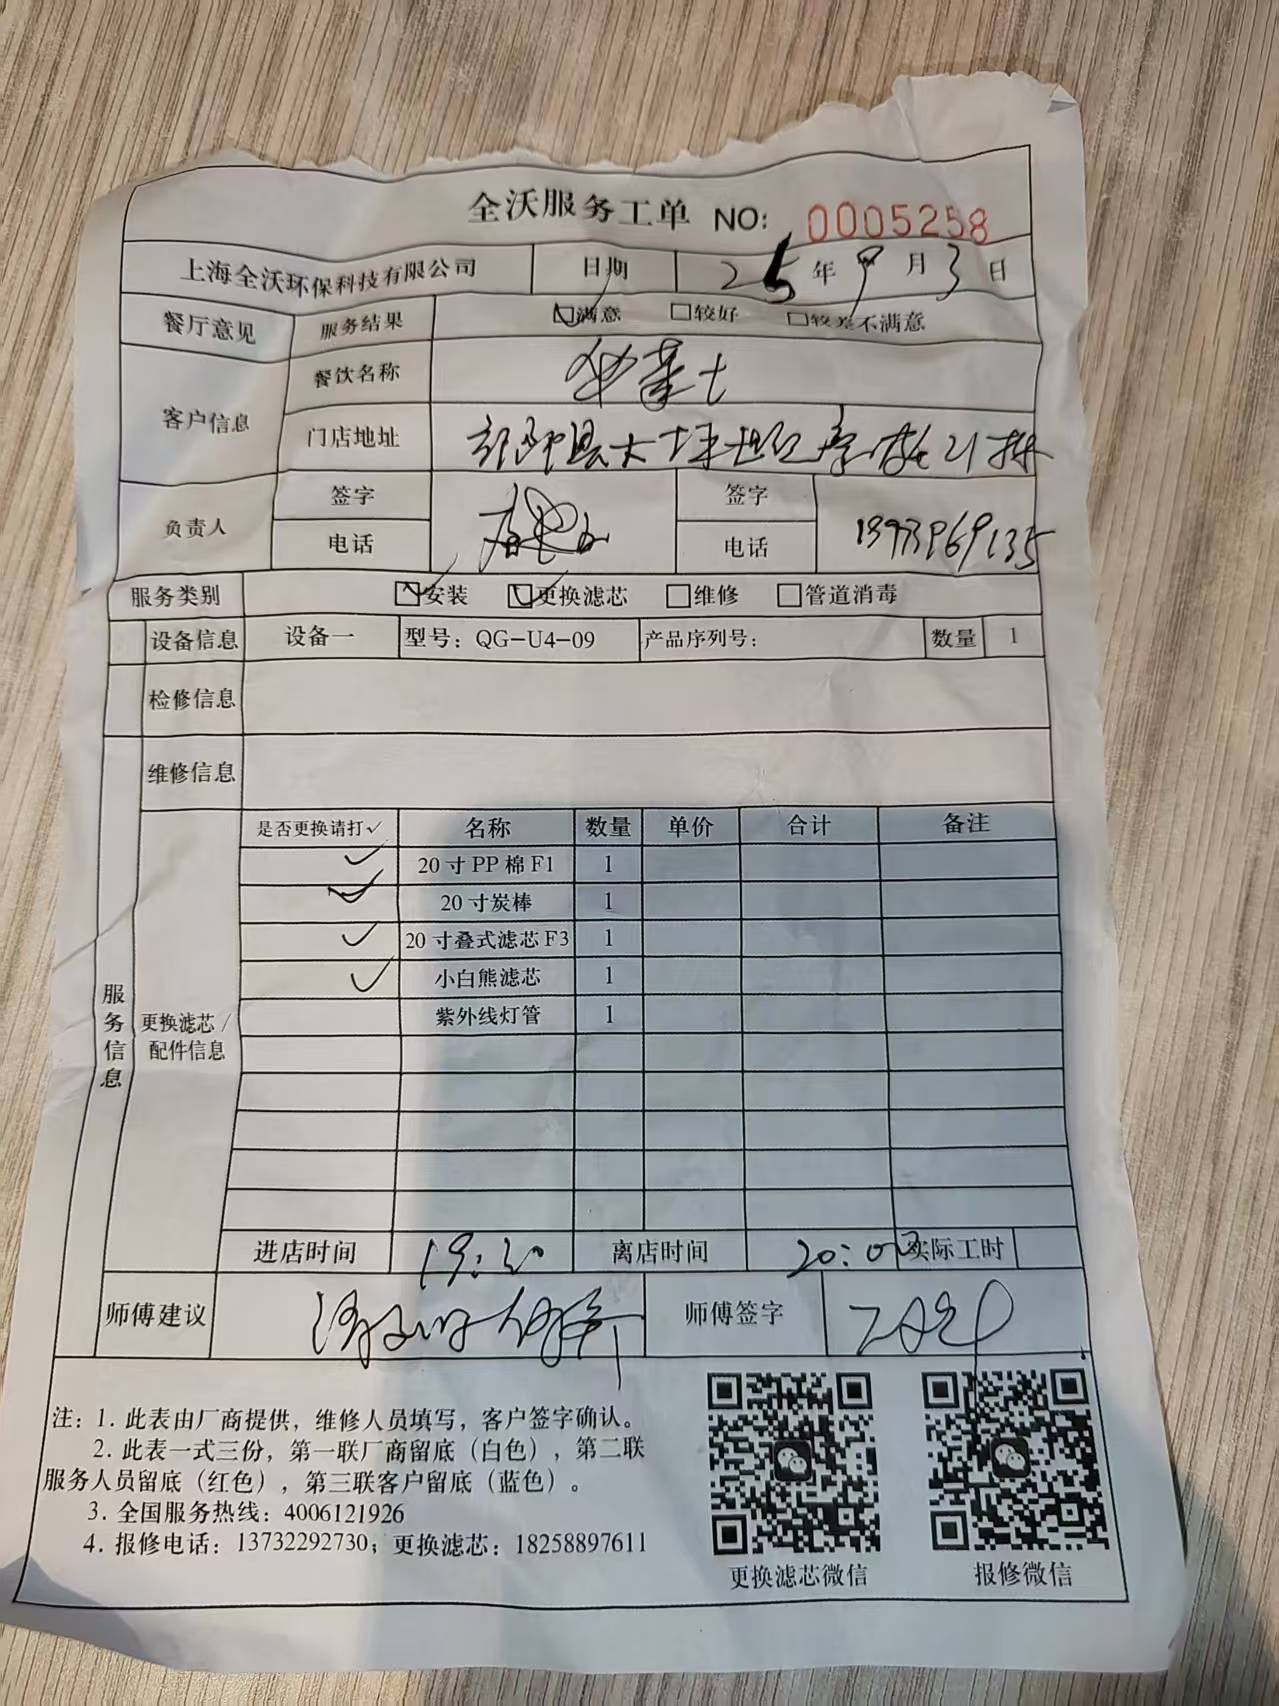 全沃服务工单 NO: 0005258
上海全沃环保科技有限公司 日期 25年9月3日
餐厅意见 服务结果 满意 较好 较差不满意
客户信息 餐饮名称 华莱士
门店地址
负责人 签字 签字
电话 电话 13973969135
服务类别 安装 更换滤芯 维修 管道消毒
设备信息 设备一 型号: QG-U4-09 产品序列号: 数量 1
检修信息
维修信息
服务信息
更换滤芯/配件信息
是否更换请打✓ 名称 数量 单价 合计 备注
✓ 20寸PP棉F1 1
✓ 20寸炭棒 1
✓ 20寸叠式滤芯F3 1
✓ 小白熊滤芯 1
紫外线灯管 1
进店时间 19:20 离店时间 20:00 实际工时
师傅建议 师傅签字
注: 1. 此表由厂商提供, 维修人员填写, 客户签字确认。
2. 此表一式三份, 第一联厂商留底(白色), 第二联
服务人员留底(红色), 第三联客户留底(蓝色)。
3. 全国服务热线: 4006121926
4. 报修电话: 13732292730; 更换滤芯: 18258897611
更换滤芯微信 报修微信